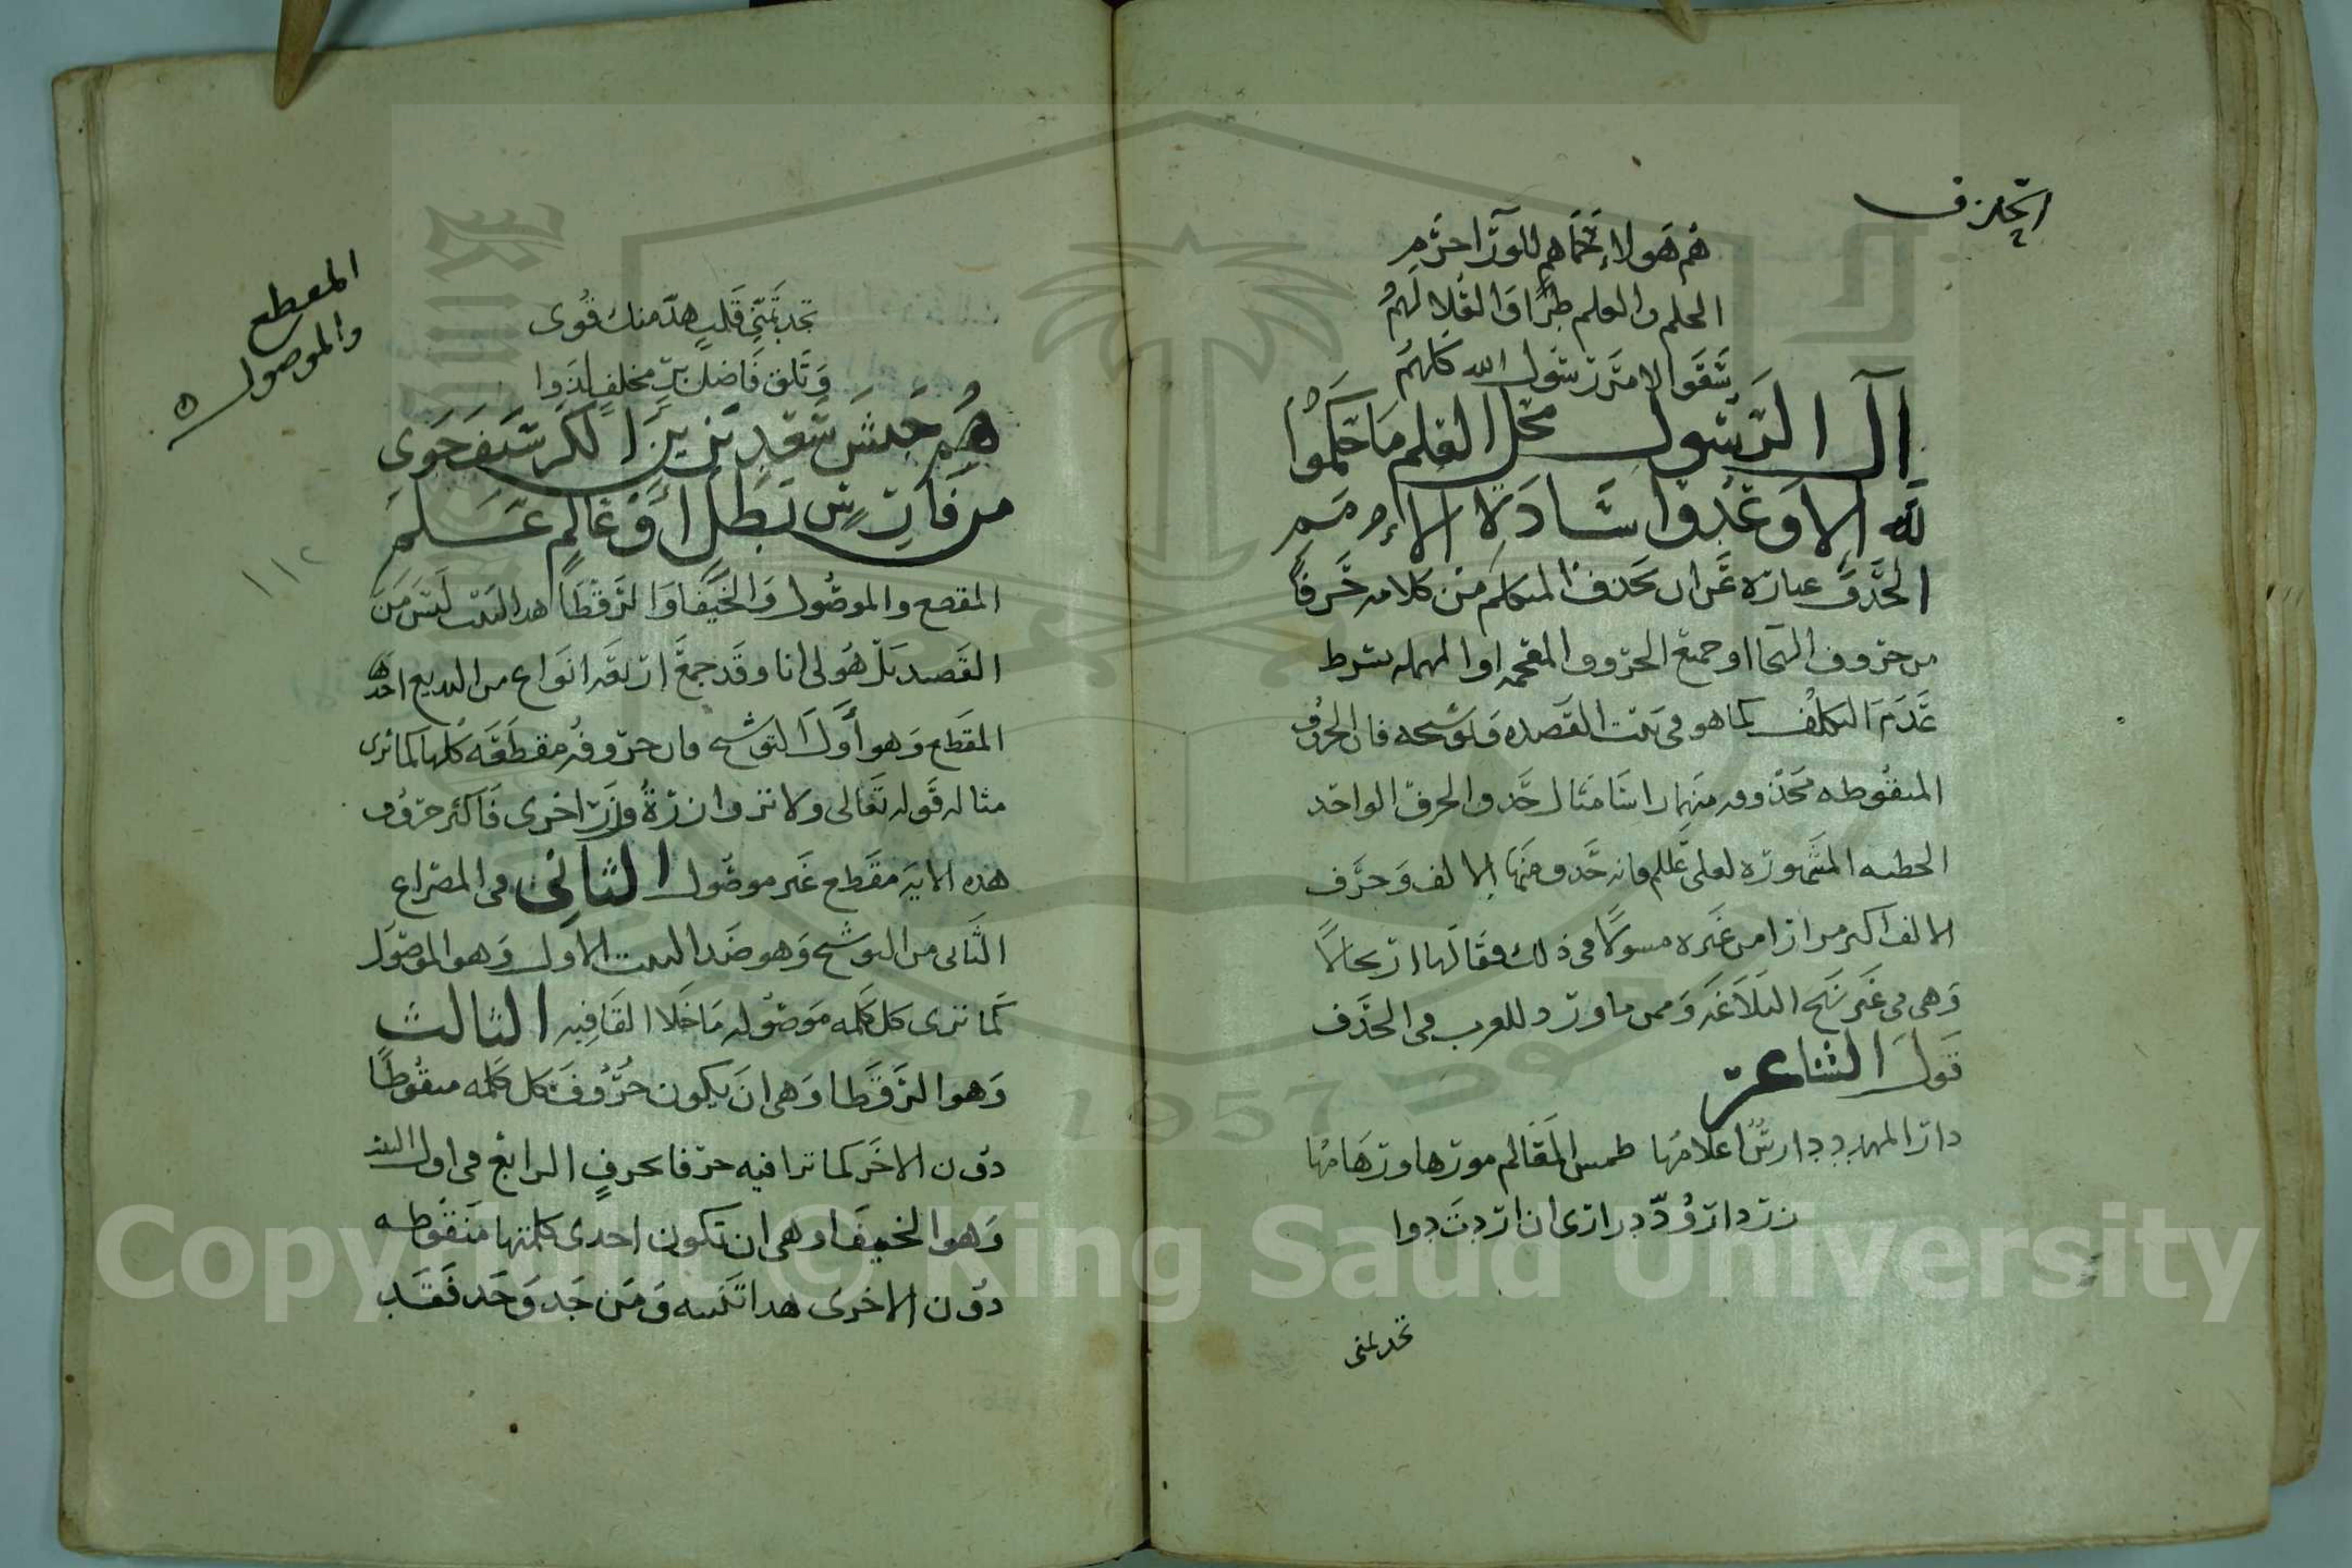 الحذف
هم هولاء
الحلم والعلم طرا والعلا لهم
سقوا الامر رسول الله كلهم
آل الرسول محل العلم ما حكموا
لله الا وعدوا سادة الامم
الحذف عبارة عن ان يحذف المتكلم من كلامه حرفا
من حروف الهجا او جميع الحروف المعجمه او المهمله بشرط
عدم التكلف كما هو في بيت القصيده وتوشيحه فان الحروف
المنقوطه محذوفه منهما راسا مثال حذف الحرف الواحد
الخطبه المشهورة لعلي عللم فانه حذف منها الالف وحرف
الالف اكثر مرارا من غيره مسولا في ذلك فقالها ارتجالا
وهي في غير نهج البلاغه وممن ما ورد للعرب في الحذف
قول الشاعر
دار المهدد دارس اعلامها طمس المعالم مورها ورهامها
زر دار ود درارى ان اردت دوا
تجد بمنى
المقطع
والموصول
١١٢
تجد بمنى قلب هد منك قوى
وتلق فاضل بر مخلف
هم جيش سعد بزين الكر سيف حوى
من فات س بطل او عالم علم
المقطع والموصول والخيفا والرقطا هذا البيت ليس من
القصيد بل هو لي انا وقد جمع اربعه انواع من البديع احدها
المقطع وهو اول التوشيح فان حروفه مقطعه كلها كما ترى
مثاله قوله تعالى ولا تزر وازرة وزر اخرى فاكثر حروف
هذه الاية مقطع غير موصول الثاني في المصراع
الثاني من التوشيح وهو ضد البيت الاول وهو الموصول
كما ترى كل كلمه موصوله ما خلا القافيه الثالث
وهو الرقطا وهى ان يكون حروف كل كلمه منقوطا
دون الاخر كما ترا فيه حرفا بحرف الرابع في اول البيت
وهو الخيفا وهى ان تكون احدى كلمتها منقوطه
دون الاخرى هذا تنبيه ومن جد وجد فقد
Copyright © King Saud University
1957